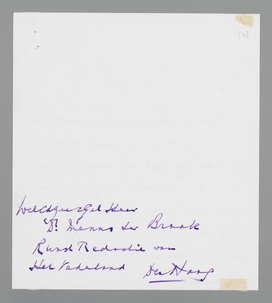 WelEdelgeb Heer
Dr. Menno ter Braak
Kunst Redactie van
Het Vaderland Den Haag